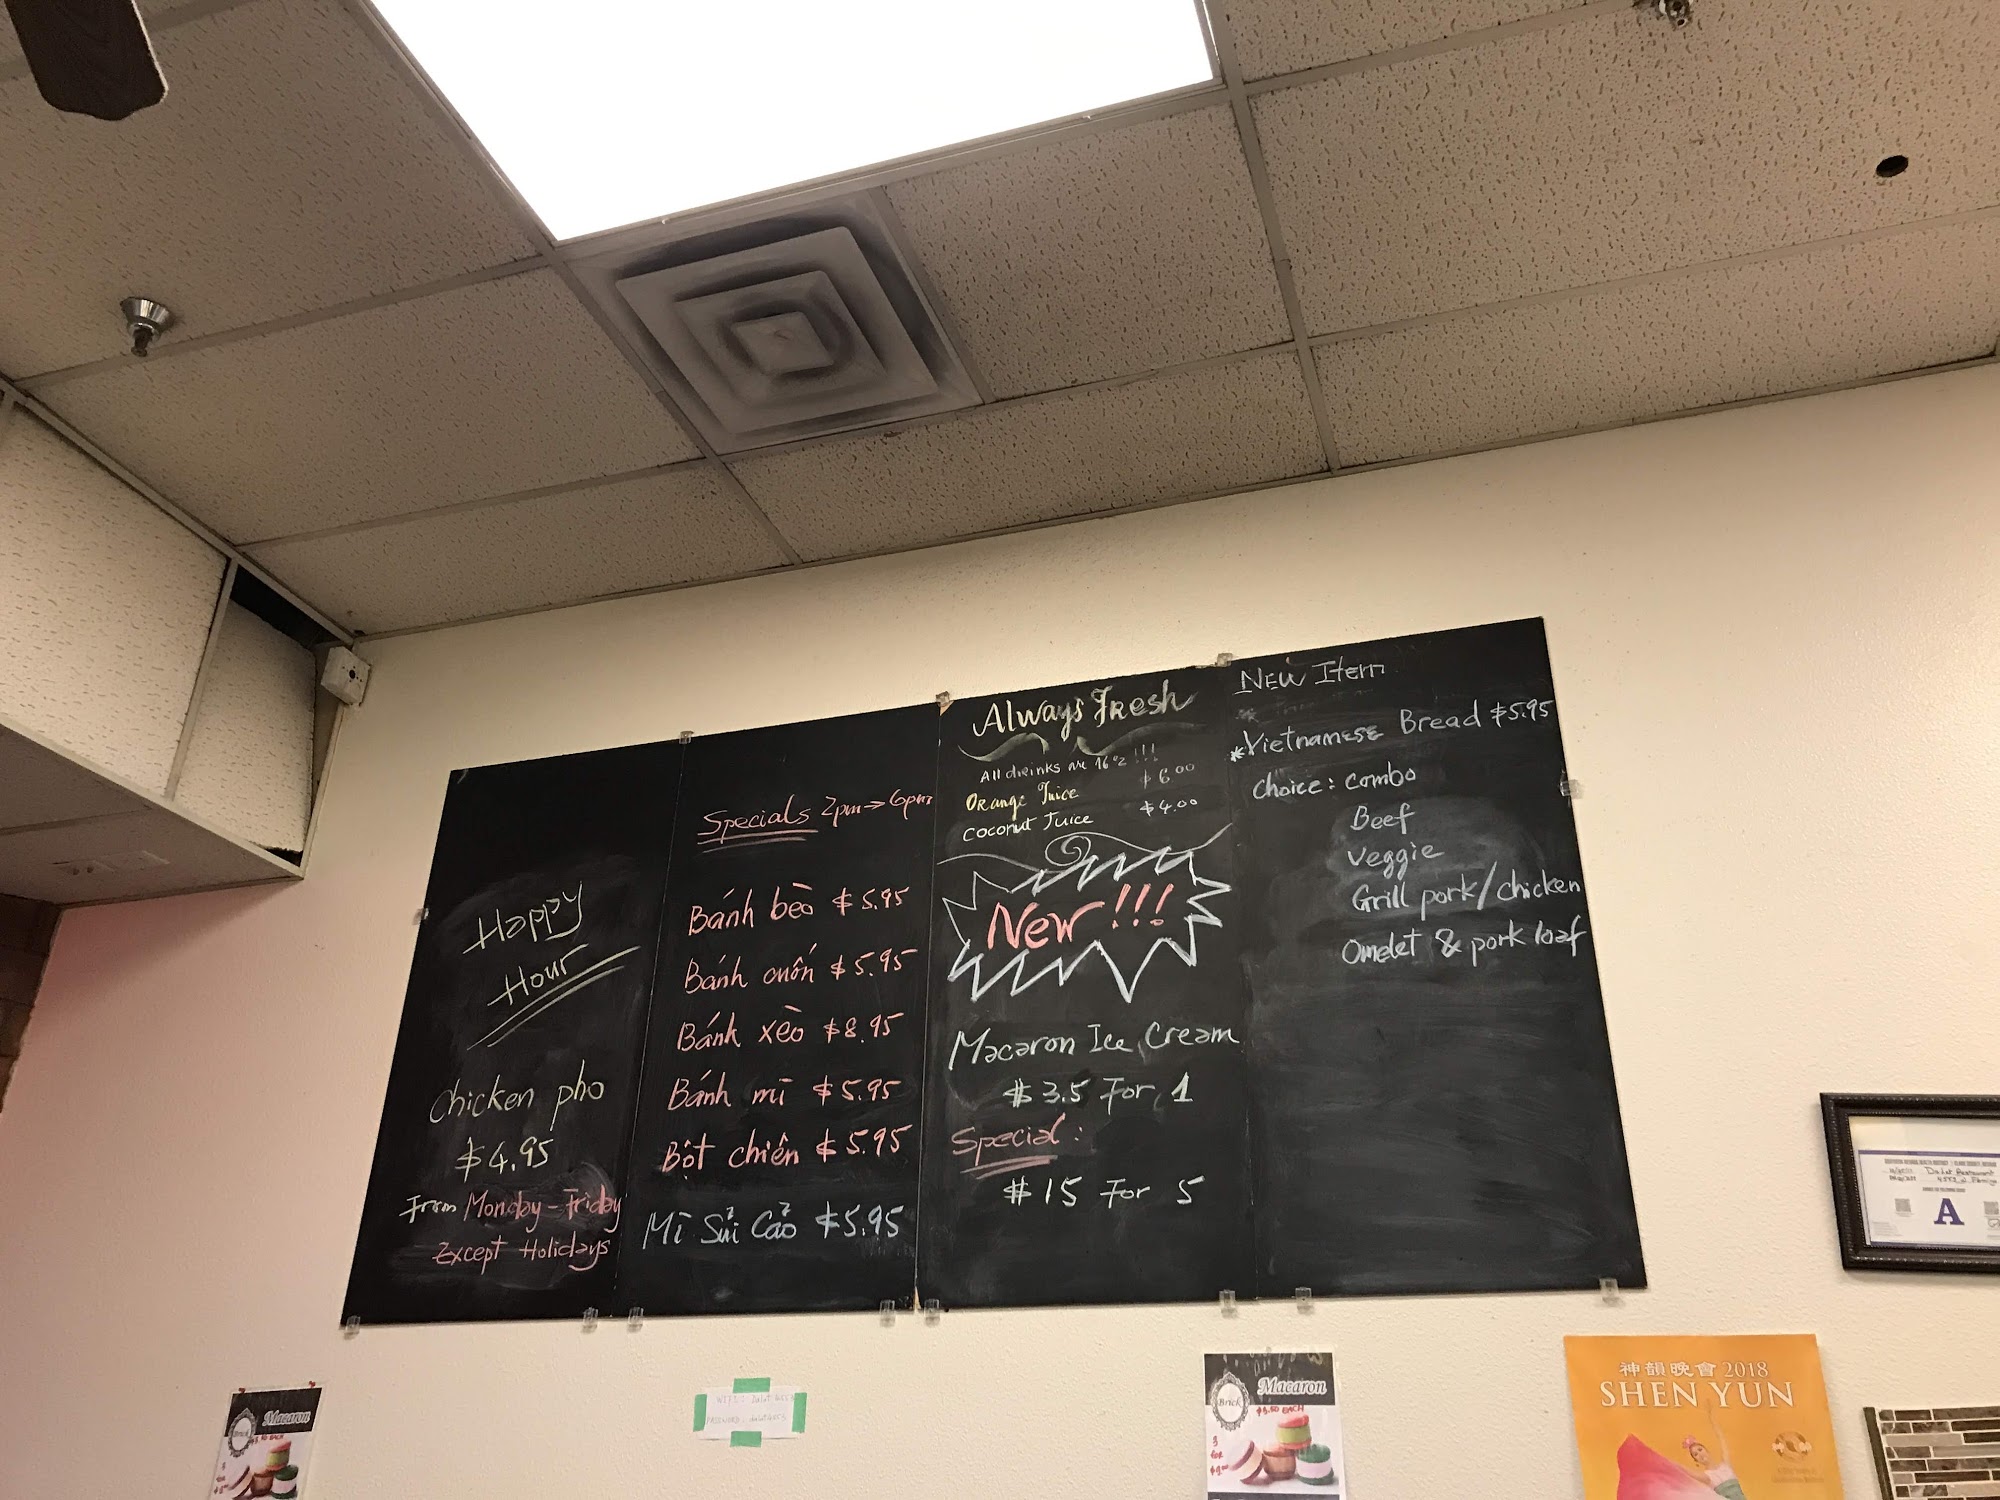 Happy
Hour
Chicken pho
$4.95
From Monday - Friday
Except Holidays
Specials 2pm → 6pm
Bánh bèo $5.95
Bánh cuốn $5.95
Bánh xèo $8.95
Bánh mì $5.95
Bột chiên $5.95
Mì Sủi Cảo $5.95
Always Fresh
All drinks are 16oz !!!
Orange Juice $6.00
Coconut Juice $4.00
New!!!
Macaron Ice Cream
$3.5 For 1
Special:
$15 For 5
New Item
*Vietnamese Bread $5.95
Choice: combo
Beef
Veggie
Grill pork/chicken
Omelet & pork loaf
Macaron
Brick
$3.50 EACH
3
FOR
Macaron
Brick
$3.50 EACH
3
FOR
神韻晚會 2018
SHEN YUN
A